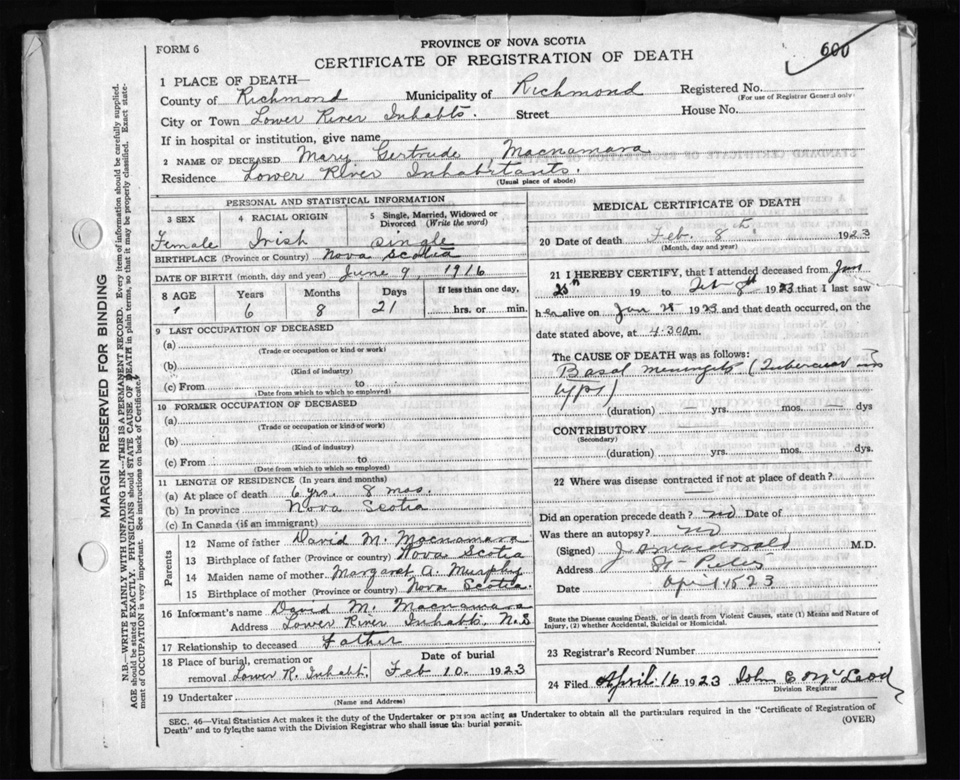 FORM 6
PROVINCE OF NOVA SCOTIA
CERTIFICATE OF REGISTRATION OF DEATH
600
1 PLACE OF DEATH—
County of Richmond Municipality of Richmond Registered No.
(For use of Registrar General only)
City or Town Lower River Inhabts. Street House No.
If in hospital or institution, give name
2 NAME OF DECEASED Mary Gertrude Macnamara
Residence Lower River Inhabitants.
(Usual place of abode)
PERSONAL AND STATISTICAL INFORMATION
3 SEX 4 RACIAL ORIGIN 5 Single, Married, Widowed or Divorced (Write the word)
Female Irish Single
BIRTHPLACE (Province or Country) Nova Scotia
DATE OF BIRTH (month, day and year) June 9, 1916
8 AGE Years Months Days If less than one day,
6 8 21 hrs. or min.
9 LAST OCCUPATION OF DECEASED
(a)
(Trade or occupation or kind or work)
(b)
(Kind of industry)
(c) From to
(Date from which to which so employed)
10 FORMER OCCUPATION OF DECEASED
(a)
(Trade or occupation or kind of work)
(b)
(Kind of industry)
(c) From to
(Date from which to which so employed)
11 LENGTH OF RESIDENCE (In years and months)
(a) At place of death 6 yrs. 8 mos.
(b) In province Nova Scotia
(c) In Canada (if an immigrant)
Parents
12 Name of father David M. Macnamara
13 Birthplace of father (Province or country) Nova Scotia
14 Maiden name of mother Margaret A. Murphy
15 Birthplace of mother (Province or country) Nova Scotia.
16 Informant's name David M. Macnamara
Address Lower River Inhabts, N.S
17 Relationship to deceased Father
18 Place of burial, cremation or removal Lower R. Inhabt. Date of burial Feb 10. 1923
19 Undertaker
(Name and Address)
MEDICAL CERTIFICATE OF DEATH
20 Date of death Feb. 8th. 1923
(Month, day and year)
21 I HEREBY CERTIFY, that I attended deceased from Jan
19 to Feb 8th 1923 that I last saw
her on Jan 1923 and that death occurred, on the
date stated above, at 4.30 m.
The CAUSE OF DEATH was as follows:
Basal meningitis (
type)
(duration) — yrs. mos. — dys
CONTRIBUTORY
(Secondary)
(duration) yrs. mos. dys.
22 Where was disease contracted if not at place of death?
Did an operation precede death? no Date of
Was there an autopsy? no
(Signed) M.D.
Address St Peters
Date April 15 23
State the Disease causing Death, or in death from Violent Causes, state (1) Means and Nature of
Injury, (2) whether Accidental, Suicidal or Homicidal.
23 Registrar's Record Number
24 Filed April 16 1923 John C McLeod
Division Registrar
SEC. 46—Vital Statistics Act makes it the duty of the Undertaker or person acting as Undertaker to obtain all the particulars required in the "Certificate of Registration of
Death" and to fyle the same with the Division Registrar who shall issue the burial permit.
(OVER)
MARGIN RESERVED FOR BINDING
N.B.—WRITE PLAINLY WITH UNFADING INK—THIS IS A PERMANENT RECORD. Every item of information should be carefully supplied.
AGE should be stated EXACTLY. PHYSICIANS should STATE CAUSE OF DEATH in plain terms, so that it may be properly classified. Exact state-
ment of OCCUPATION is very important. See instructions on back of Certificate.